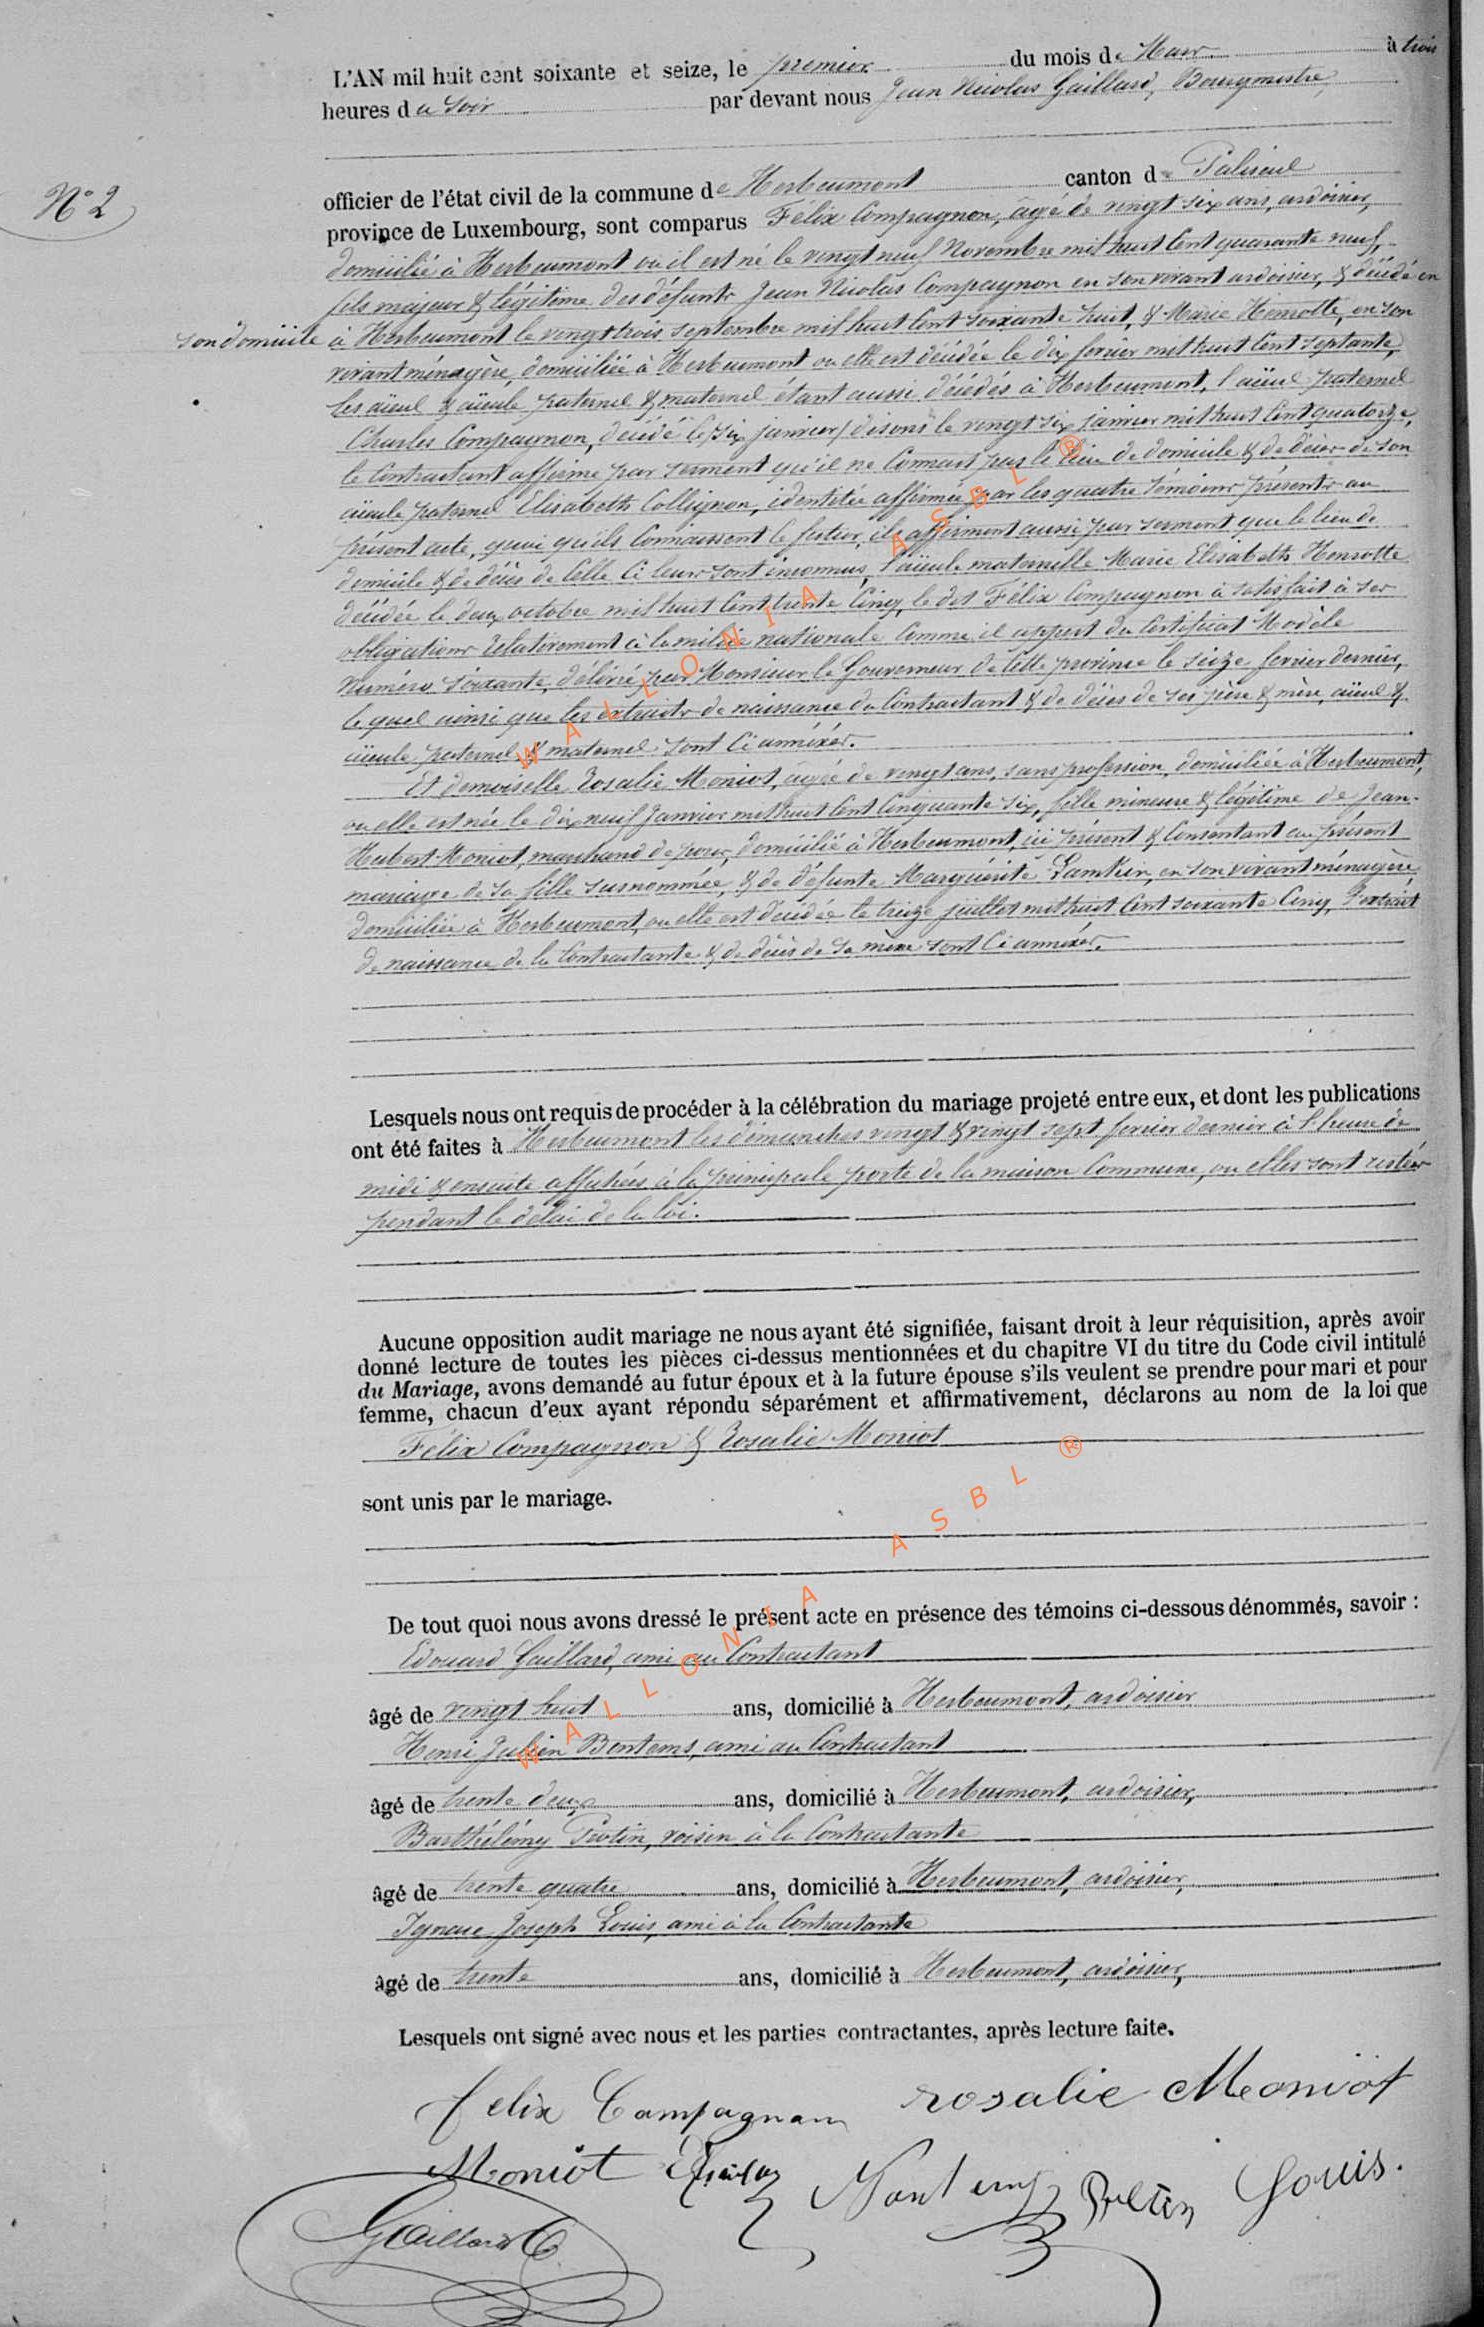 L'AN mil huit cent soixante et seize, le premier du mois de Mars à trois
heures du Soir par devant nous Jean Nicolas Gaillard, Bourgmestre,
N° 2
officier de l'état civil de la commune de Herbeumont canton de Paliseul
province de Luxembourg, sont comparus Félix Compagnon, âgé de vingt six ans, ardoisier,
domicilié à Herbeumont où il est né le vingt neuf Novembre mil huit Cent quarante neuf,
fils majeur & légitime des défunts Jean Nicolas Compagnon en son vivant ardoisier, & décédé en
son domicile à Herbeumont le vingt trois septembre mil huit Cent soixante huit, & Marie Henrotte, en son
vivant ménagère, domiciliée à Herbeumont où elle est décédée le dix fevrier mil huit Cent septante,
les aïeul & aïeule paternel & maternel étant aussi décédés à Herbeumont, l'aïeul paternel
Charles Compagnon, décédé le (six janvier) disons le vingt six janvier mil huit Cent quatorze,
le Contractant affirme par serment qu'il ne Connait pas le lieu de domicile & de décès de son
aïeule paternel Elisabeth Collignon, identitée affirmée par les quatre témoins présents au
présent acte, quoi qu'ils Connaissent le futur, ils affirment aussi par serment que le lieu de
domicile & de décès de Celle Ci leur sont inconnus, l'aïeule maternelle Marie Elisabeth Henrotte
décédée le deux octobre mil huit Cent trente Cinq, le dit Félix Compagnon à satisfait à ses
obligations relativement à la milice nationale Comme il appert du Certificat Modèle
Numéro soixante, délivré par Monsieur le Gouverneur de Cette province le seize fevrier dernier,
le quel ainsi que les extraits de naissance du Contractant & de décès de ses père & mère, aïeul &
aïeule paternel & maternel sont Ci annéxés.
Et demoiselle Rosalie Moniot, âgée de vingt ans, sans profession, domiciliée à Herbeumont,
où elle est née le dix neuf Janvier mil huit Cent Cinquante six, fille mineure & légitime de Jean
Hubert Moniot, marchand de porcs, domicilié à Herbeumont, ici présent & Consentant au présent
mariage de sa fille susnommée, & de défunte Marguérite Lamkin, en son vivant ménagère
domiciliée à Herbeumont, où elle est décédée le treize juillet mil huit Cent soixante Cinq, l'extrait
de naissance de la Contractante & de décès de sa mère sont Ci annéxés.
Lesquels nous ont requis de procéder à la célébration du mariage projeté entre eux, et dont les publications
ont été faites à Herbeumont les dimanches vingt & vingt sept fevrier dernier à l'heure de
midi & ensuite affichées à la principale porte de la maison Commune, où elles sont restées
pendant le délai de la loi.
Aucune opposition audit mariage ne nous ayant été signifiée, faisant droit à leur réquisition, après avoir
donné lecture de toutes les pièces ci-dessus mentionnées et du chapitre VI du titre du Code civil intitulé
du Mariage, avons demandé au futur époux et à la future épouse s'ils veulent se prendre pour mari et pour
femme, chacun d'eux ayant répondu séparément et affirmativement, déclarons au nom de la loi que
Félix Compagnon & Rosalie Moniot
sont unis par le mariage.
De tout quoi nous avons dressé le présent acte en présence des témoins ci-dessous dénommés, savoir :
Edouard Gaillard, ami au Contractant
âgé de vingt huit ans, domicilié à Herbeumont, ardoisier
Henri Julien Bontems, ami au Contractant
âgé de trente deux ans, domicilié à Herbeumont, ardoisier,
Barthélémy Potin, voisin à la Contractante
âgé de trente quatre ans, domicilié à Herbeumont, ardoisier,
Ignace Joseph Louis, ami à la Contractante
âgé de trente ans, domicilié à Herbeumont, ardoisier,
Lesquels ont signé avec nous et les parties contractantes, après lecture faite.
felix Compagnon rosalie Moniot
Moniot Louis.
Gaillard
WALLONIA ASBL ®
WALLONIA ASBL ®